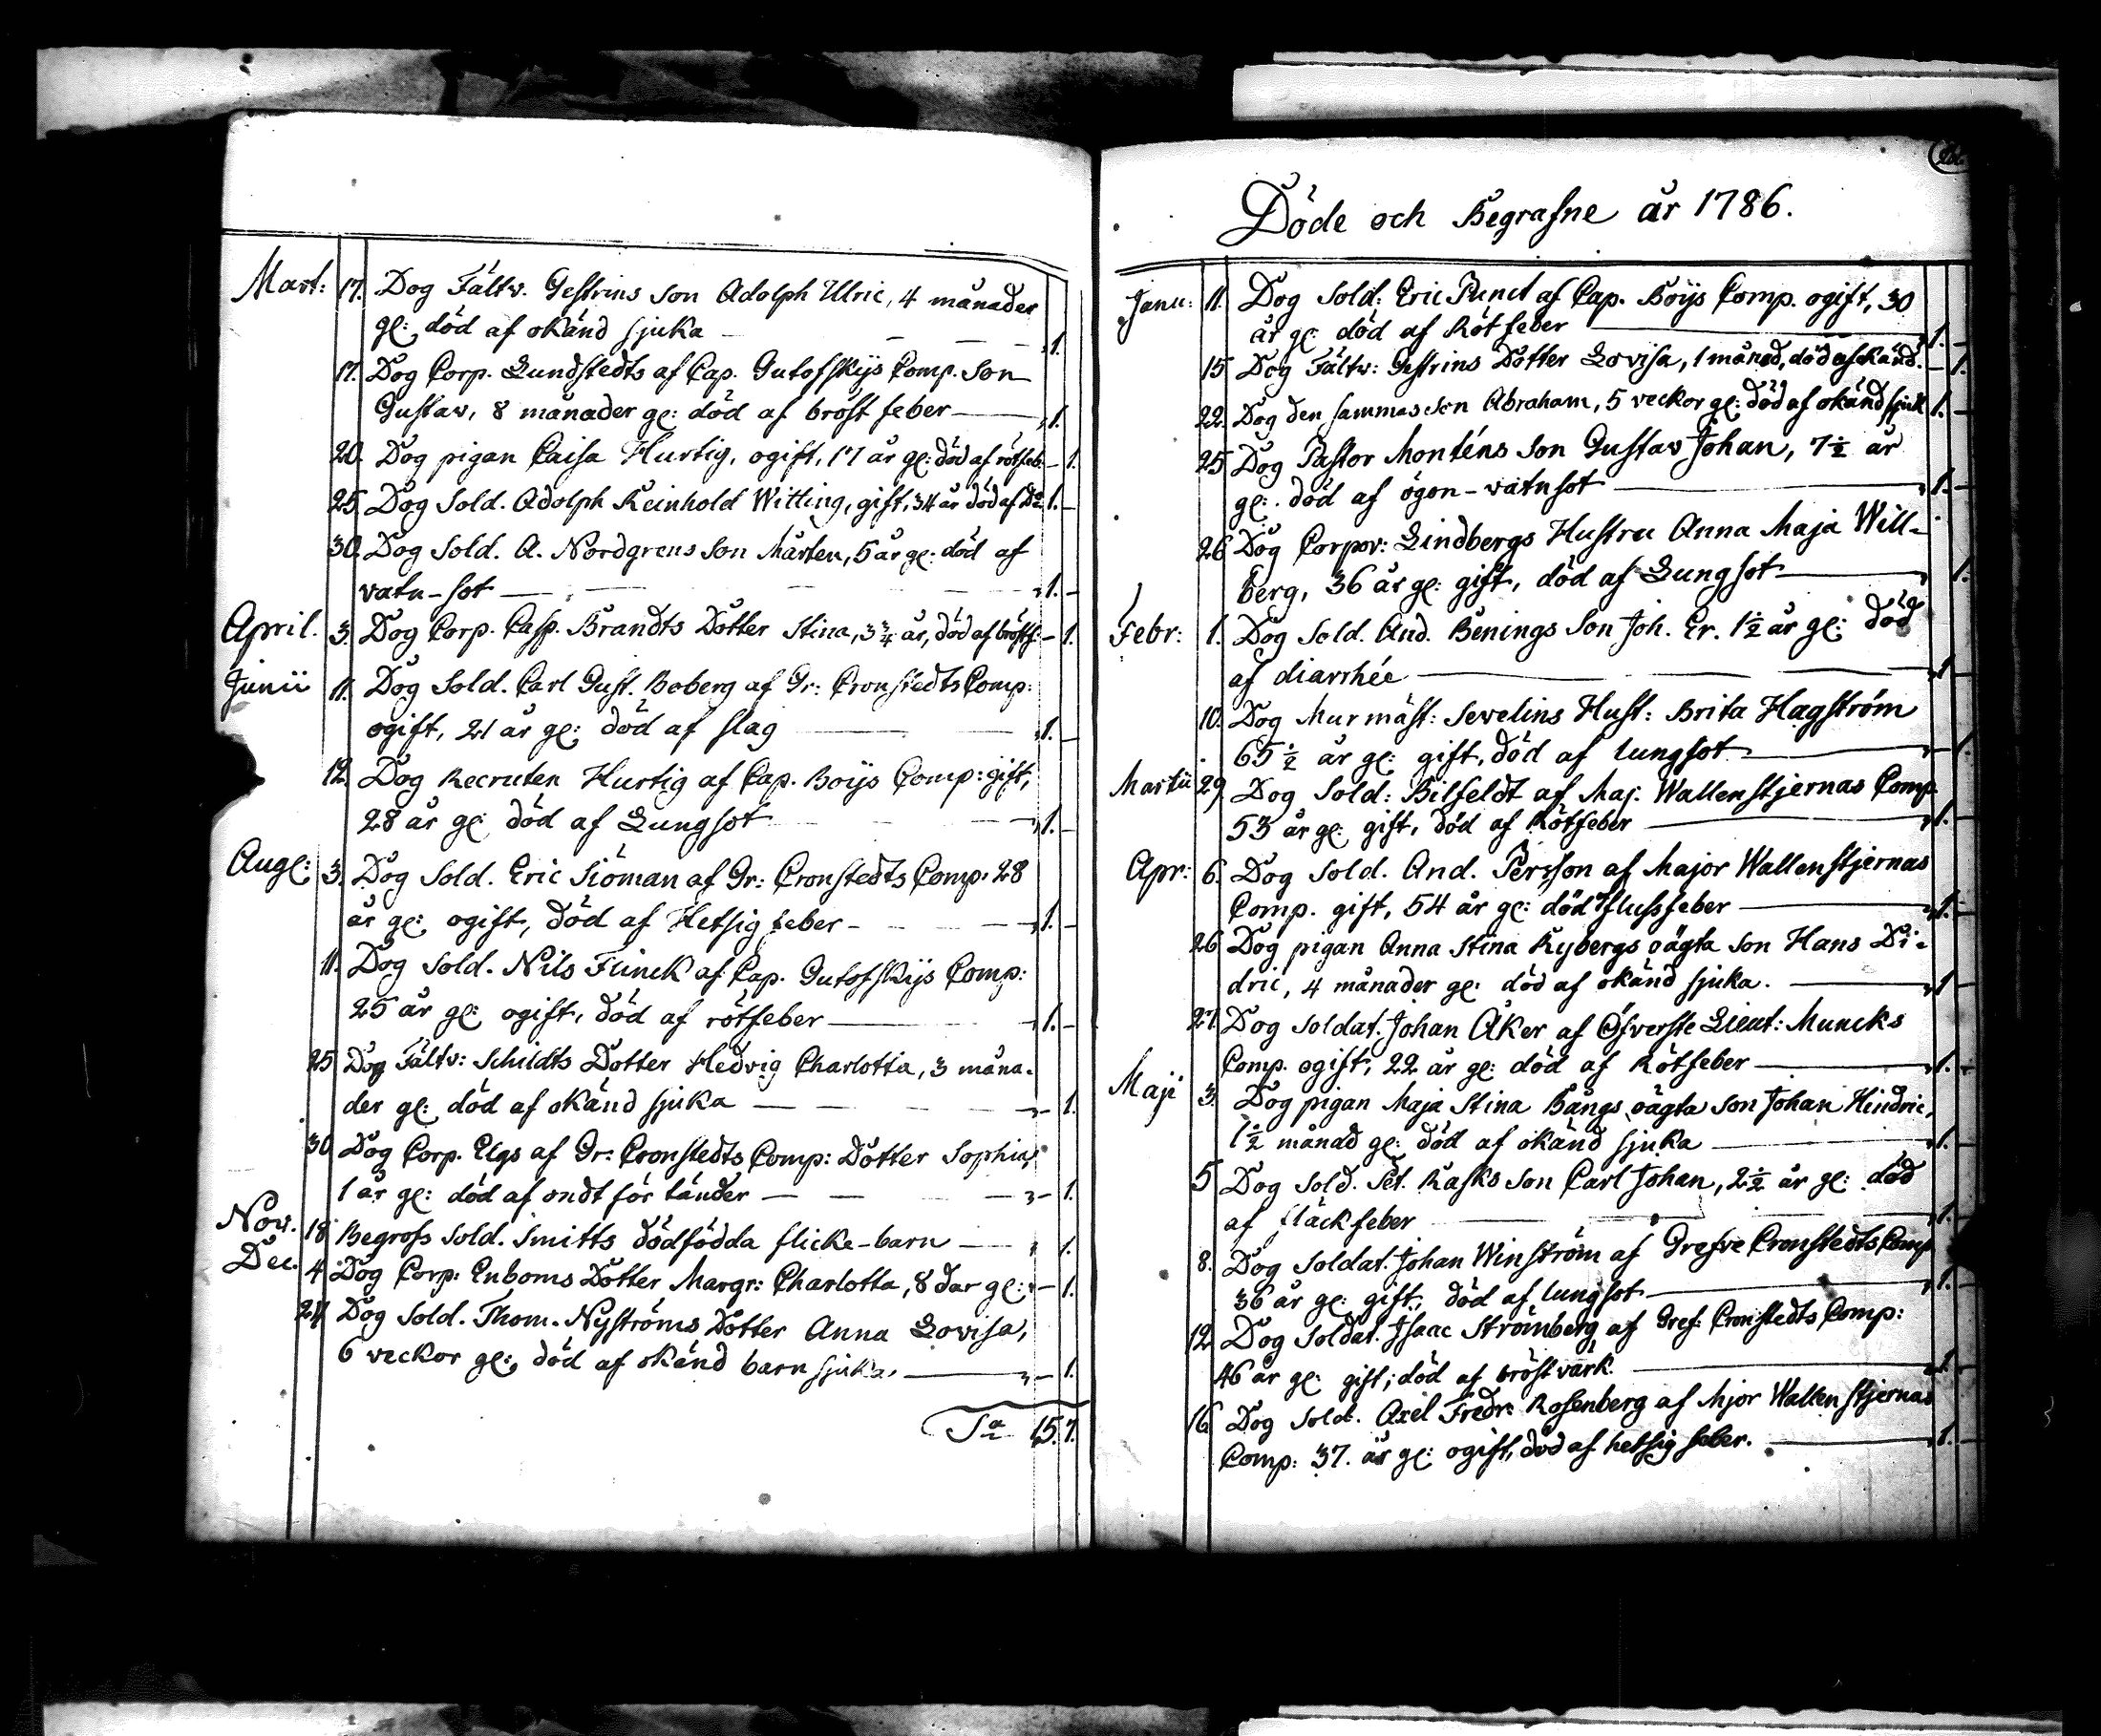 Mart: 17. Dog Fältv. Gestrins Son Adolph Ulric, 4 månader
gl: död af okänd sjuka 1.
17. Dog Corp. Lundstedts af Cap. Gutofskijs Comp. Son
Gustaw, 8 månader gl: död af bröst feber 1.
20. Dog pigan Caisa Hurtig, ogift, 17 år gl: död af rötfeb. 1.
25. Dog Sold. Adolph Reinhold Witting, gift, 34 år död af Do 1.
30. Dog Sold. A. Nordgrens Son Mårten, 5 år gl: död af
vatn-sot 1.
April. 3. Dog Corp. Casp. Brandts Dotter Stina, 3 3/4 år, död af bröstf: 1.
Junii 11. Dog Sold. Carl Gust. Boberg af Gr: Cronstedts Comp:
ogift, 21 år gl: död af slag 1.
12. Dog Recruten Hurtig af Cap. Boijs Comp: gift,
28 år gl: död af Lungsot 1.
Aug: 3. Dog Sold. Eric Siöman af Gr: Cronstedts Comp: 28
år gl: ogift, död af Hetsig feber 1.
11. Dog Sold. Nils Flinck af Cap. Gutofskijs Comp:
25 år gl: ogift, död af rötfeber 1.
25 Dog Fältv: Schildts Dotter Hedvig Charlotta, 3 måna-
der gl: död af okänd sjuka 1.
30 Dog Corp. Elgs af Gr: Cronstedts Comp: Dotter Sophia,
1 år gl: död af ondt för tänder 1.
Nov. 18 Begrofs Sold. Smitts dödfödda flicke-barn 1.
Dec. 4 Dog Corp: Enboms Dotter Margr: Charlotta, 8 dar gl: 1.
24 Dog Sold. Thom. Nyströms Dotter Anna Lovisa,
6 veckor gl: död af okänd barnsjuka. 1.
Sa 15. 7.
Döde och Begrafne år 1786.
Janu: 11. Dog Sold: Eric Punct af Cap. Boijs Comp. ogift, 30
år gl: död af Rötfeber 1.
15 Dog Fältw: Gestrins Dotter Lovisa, 1 månad, död af okänd. 1.
22. Dog den sammas Son Abraham, 5 veckor gl: död af okänd sjuk 1.
25 Dog Pastor Monténs Son Gustav Johan, 7 1/2 år
gl: död af ögon-vatnsot 1.
26 Dog Corpor: Lindbergs Hustru Anna Maja Will-
berg, 36 år gl: gift, död af Lungsot 1.
Febr: 1. Dog Sold. And. Benings Son Joh. Er. 1 1/2 år gl: död
af diarrhée 1
10. Dog Murmäst: Sevelins Hust: Brita Hagström
65 1/2 år gl: gift, död af lungsot 1.
Martii 29 Dog Sold: Bilfeldt af Maj: Wallenstjernas Comp
53 år gl: gift, död af Rötfeber 1.
Apr: 6. Dog Sold. And. Persson af Major Wallenstjernas
Comp. gift, 54 år gl: död af flussfeber 1.
26 Dog pigan Anna Stina Rybergs oägta son Hans Di-
dric, 4 månader gl: död af okänd sjuka. 1
27. Dog Soldat. Johan Åker af Öfverste Lieut: Muncks
Comp. ogift, 22 år gl: död af Rötfeber 1.
Maji 3. Dog pigan Maja Stina Bångs oägta son Johan Hindric,
1 1/2 månad gl: död af okänd sjuka 1.
5 Dog Sold. Pet. Rasks Son Carl Johan, 2 1/2 år gl: död
af fläckfeber 1.
8. Dog Soldat. Johan Winström af Grefve Cronstedts Comp
36 år gl: gift, död af lungsot 1.
12 Dog Soldat. Isaac Strömberg af Gref: Cronstedts Comp:
46 år gl: gift, död af bröstvärk. 1
16 Dog Sold. Axel Fredr: Rosenberg af Mjor Wallenstjernas
Comp: 37. år gl: ogift, död af hetsig feber. 1.